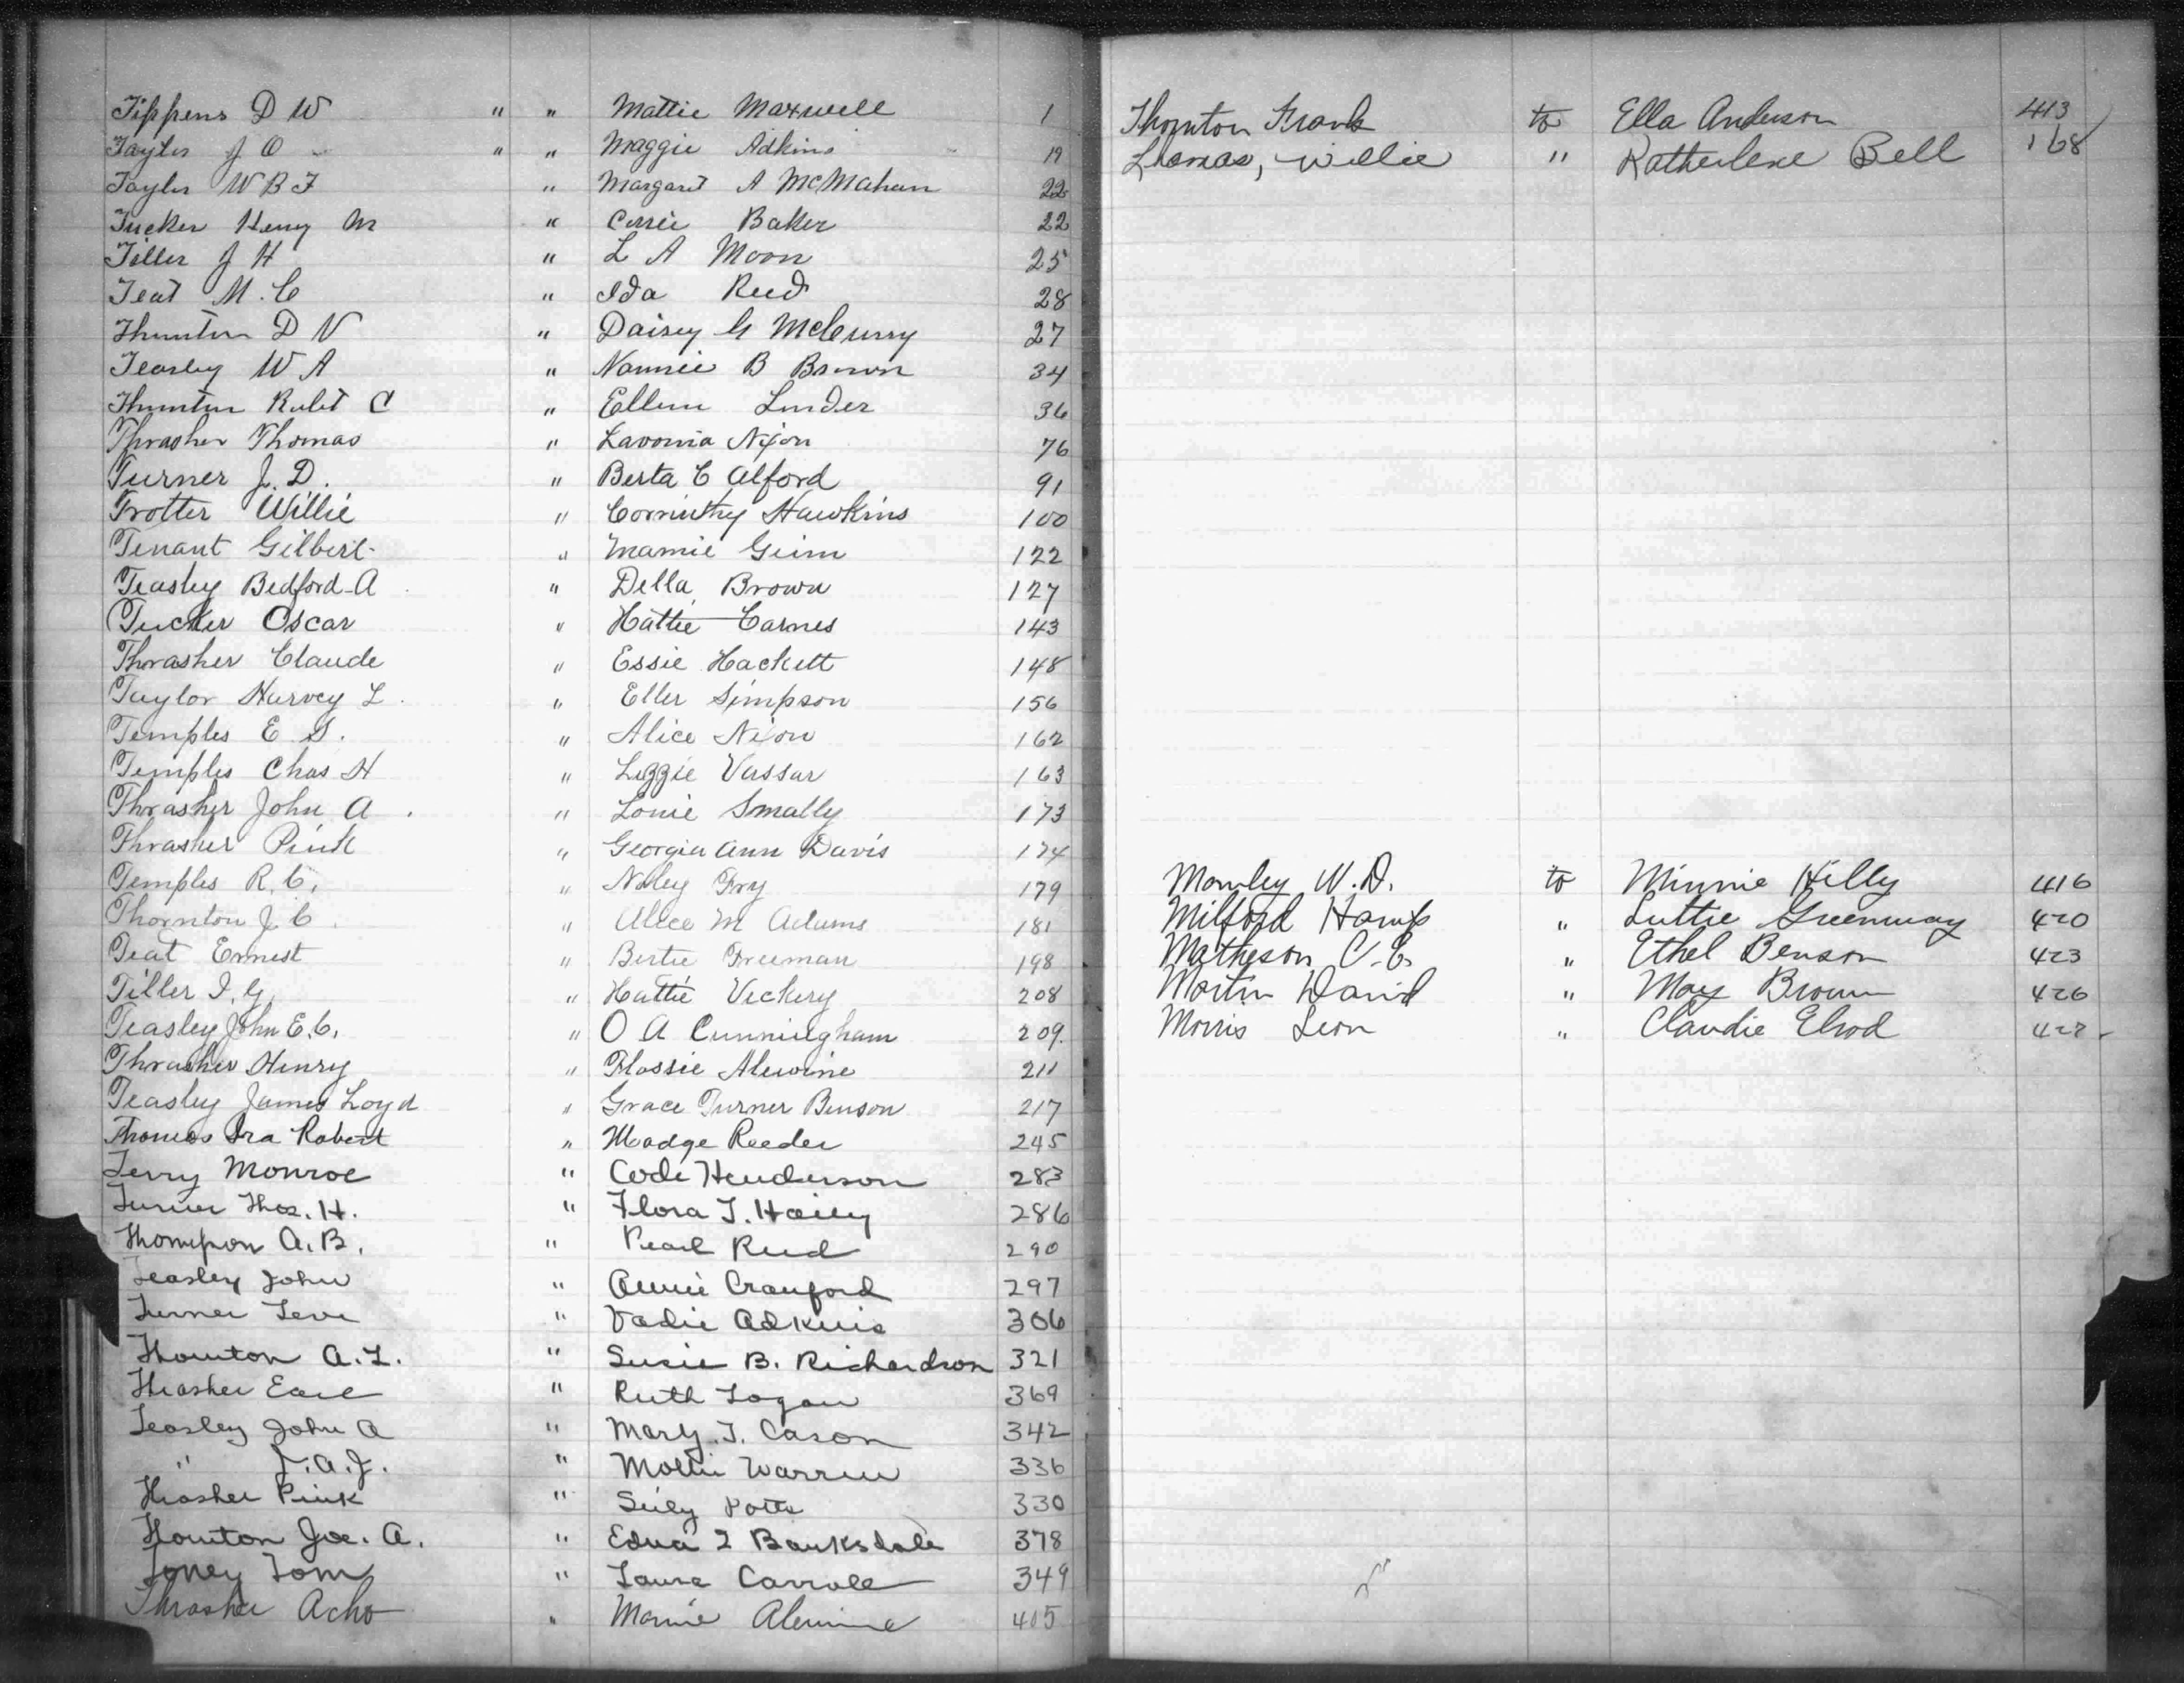 Tippens D W " " Mattie Maxwell 1
Taylor J O " " Maggie Adkins 19
Taylor W B F " Margaret A McMahan 22
Tucker Henry M " Corrie Baker 22
Tiller J H " L A Moon 25
Teat M. C " Ida Reed 28
Thornton D N " Daisey G McCurry 27
Teasley W A " Nannie B Brown 34
Thornton Robt C " Ellen Linder 36
Thrasher Thomas " Lavonia Nixon 76
Turner J. D. " Berta C Alford 91
Trotter Willie " Corrinthy Hawkins 100
Tenant Gilbert " Mamie Ginn 122
Teasley Bedford A " Della Brown 127
Tucker Oscar " Hattie Carnes 143
Thrasher Claude " Essie Hackett 148
Taylor Harvey L. " Eller Simpson 156
Temples E S. " Alice Nixon 162
Temples Chas H " Lizzie Vassar 163
Thrasher John A. " Lonie Smally 173
Thrasher Pink " Georgia Ann Davis 174
Temples R. C. " Fry 179
Thornton J. C. " Alice M Adams 181
Teat Ernest " Bertie Freeman 198
Tiller I. G. " Hattie Vickery 208
Teasley John E. C. " O A Cunningham 209.
Thrasher Henry " Flossie Alewine 211
Teasley James Loyd " Grace Turner Benson 217
Thomas Ira Robert " Madge Reeder 245
Terry Monroe " Code Henderson 283
Turner Thos. H. " Flora T. Haily 286
Thompson A. B. " Pearl Reed 290
Teasley John " Annie Crawford 297
Turner Levi " Vadie Adkins 306
Thornton A. L. " Susie B. Richardson 321
Thrasher Earl " Ruth Logan 369
Teasley John A " Mary. T. Cason 342
" T. A. J. " Mollie Warren 336
Thrasher Pink " Potts 330
Thornton Joe. A. " Edna I Banksdale 378
Toney Tom " Laura Carroll 349
Thrasher Acho " Mamie Alewine 405
Thornton Frank to Ella Anderson 413
Thomas, Willie " Katherlene Bell 168
Manley W. D. to Minnie Hilly 416
Milford Hamp " Luttie Greenway 420
Matheson C. E. " Ethel Benson 423
Martin David " May Brown 426
Morris Leon " Claudie Elrod 428